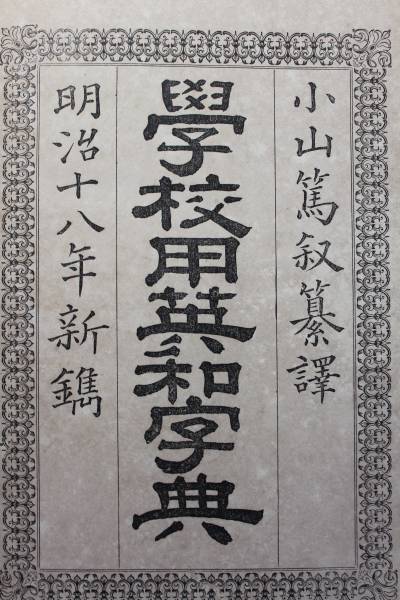 小山篤叙纂譯
學校用英和字典
明治十八年新鐫